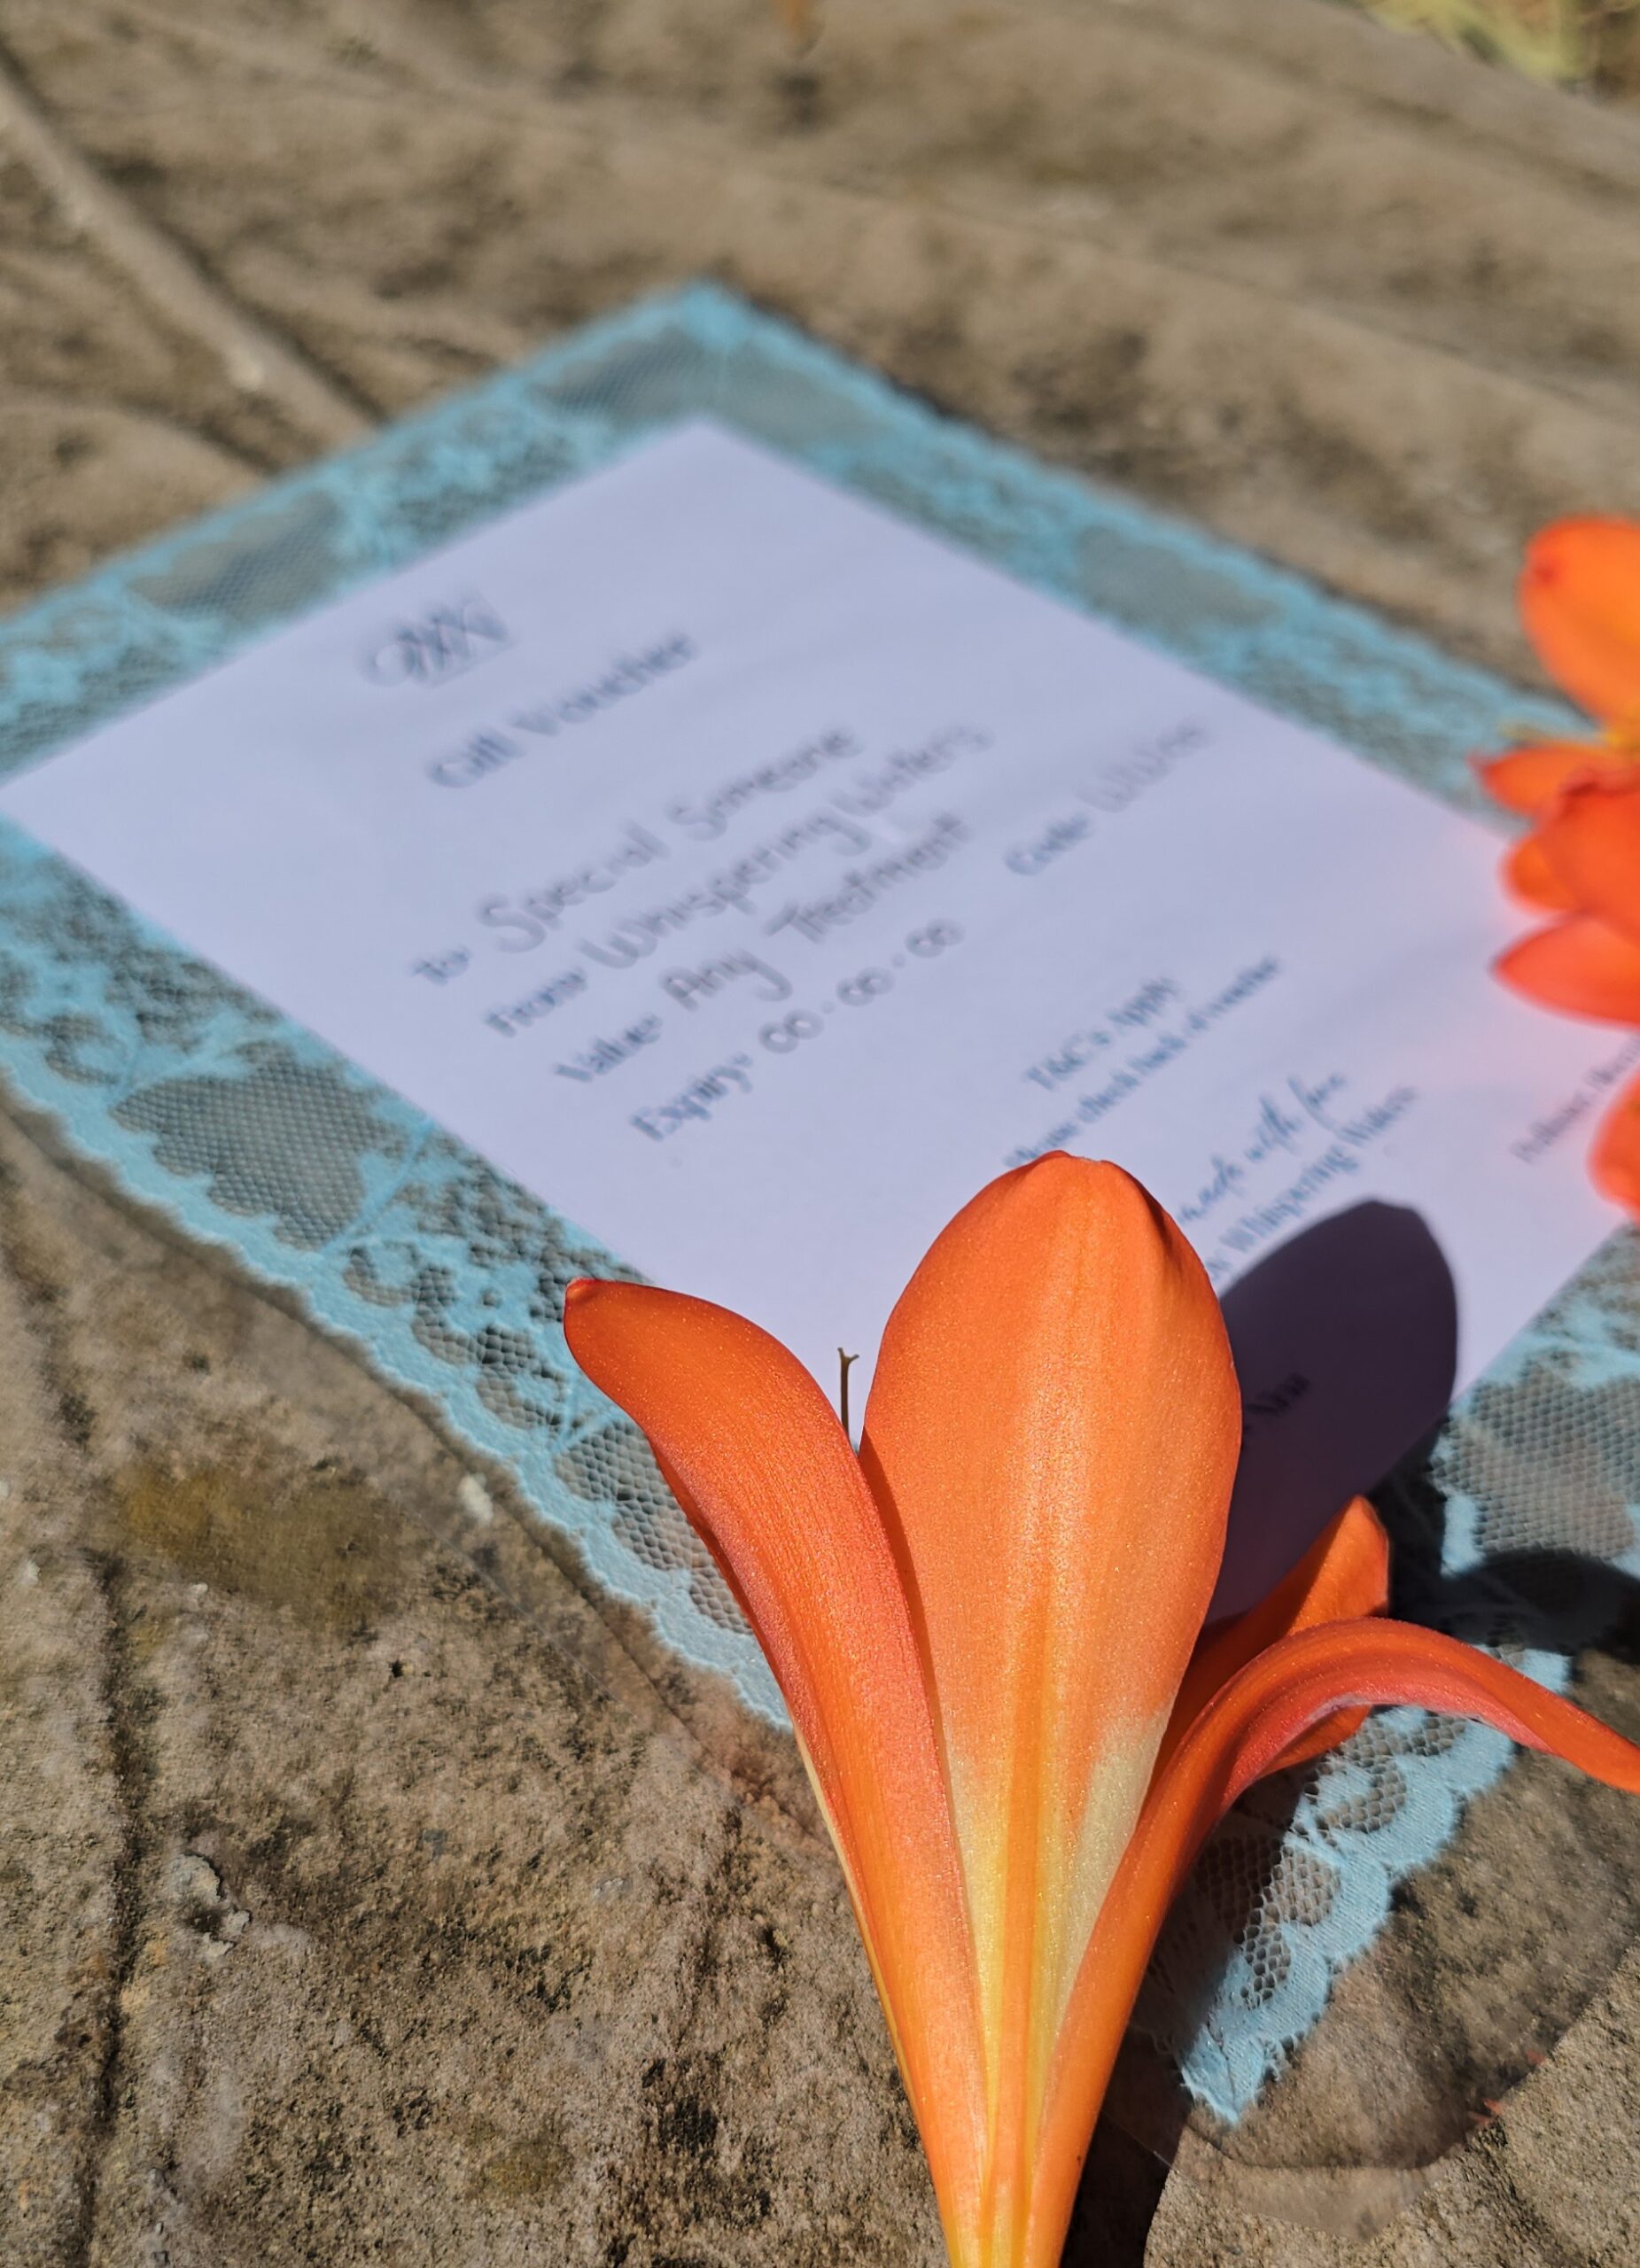 Gift Voucher
To Special Someone
From Whispering Waters
Value Any Treatment
Expiry 00.00.00
Code
T&C's Apply
Please check back of voucher
made with love
Whispering Waters